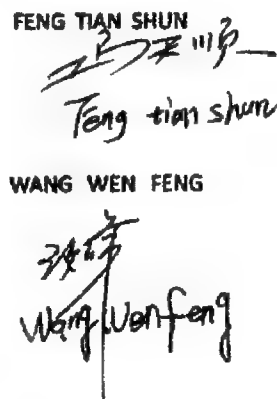 FENG TIAN SHUN
Feng tian shun
WANG WEN FENG
Wang Wenfeng